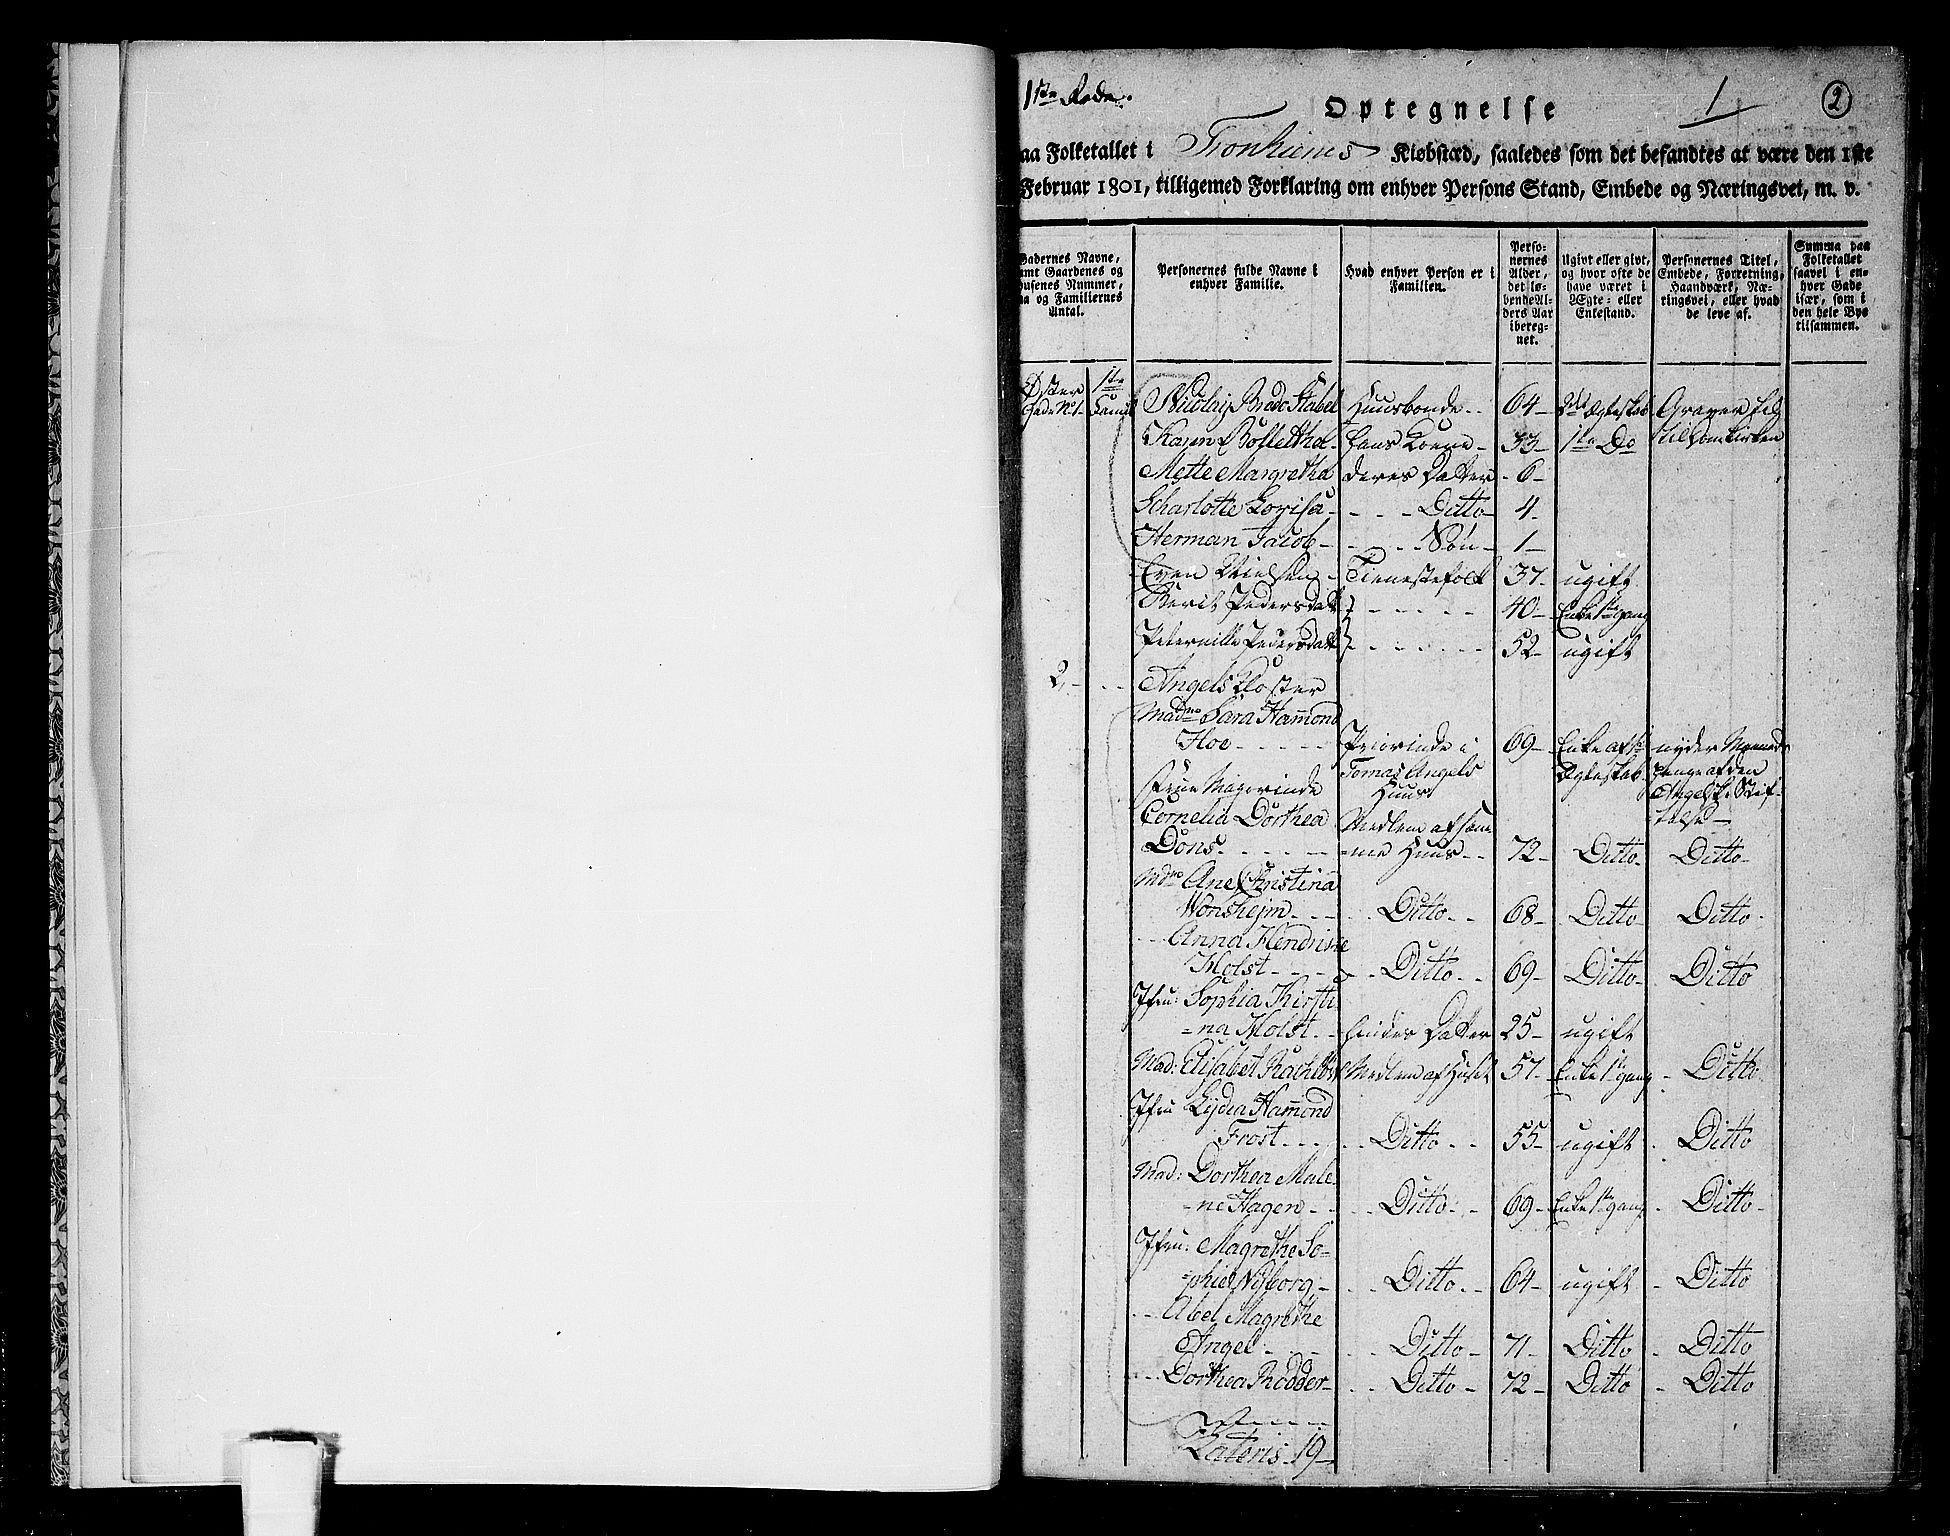 1ste Rode.
1
2
Optegnelse
aa Folketallet i Tronhiems Kiøbstæd, saaledes som det befandtes at være den 1ste
Februar 1801, tilligemed Forklaring om enhver Persons Stand, Embede og Næringsvei, m. v.
Gadernes Navne, samt Gaardenes og Husenes Nummer, aa og Familiernes Antal.
Personernes fulde Navne i enhver Familie.
Hvad enhver Person er i Familien.
Personernes Alder, det løbende Alders Aar iberegnet.
Ugivt eller givt, og hvor ofte de have været i Ægte- eller Enkestand.
Personernes Titel, Embede, Forretning, Haandværk, Næringsvei, eller hvad de leve af.
Summa paa Folketallet saavel i enhver Gade især, som i den hele Bye tilsammen.
Øster Gade No 1. 1te Famil Nicolay Brodo Stabel Huusbonde 64 2det Ægteskab Graver
Karen hans Kone 33 1te Do til Domkirken
Mette Margretha deres Datter 6
Scharlotte Lovisa Ditto 4
Herman Jacob Søn 1
Even Nielsen Tienestefolk 37 ugift
Berit Pedersdatt 40 Enke 1te gang
Peternille Pedersdatt 52 ugift
2 Angels Kloster
Madme Sara Hammond
Hoe Priorinde i 69 Enke af 1te nyder Maaneds
Tomas Angels Ægteskab penge af den
Huus Angelske Stif-
Cornelia Dorthea Medlem af sam telse
Dons =me Huus 72 Ditto Ditto
Mdme Ane Christina
Wonshejm Ditto 68 Ditto Ditto
Anna Hendrike
Holst Ditto 69 Ditto Ditto
Jfru: Sophia Kirsti-
=na Holst hendes Datter 25 ugift
Mad: Elisabet Medlem af Huset 57 Enke 1te gang Ditto
Jfru Lydia Hammond
Frost Ditto 55 ugift Ditto
Mad: Dorthea Male-
=ne Hagen Ditto 69 Enke 1te gang Ditto
Jfru: Magrethe So-
=phie Nyborg Ditto 64 ugift Ditto
Abel Magrethe
Angel Ditto 71 Ditto Ditto
Dorthea Rødder Ditto 72 Ditto Ditto
Lateris 19